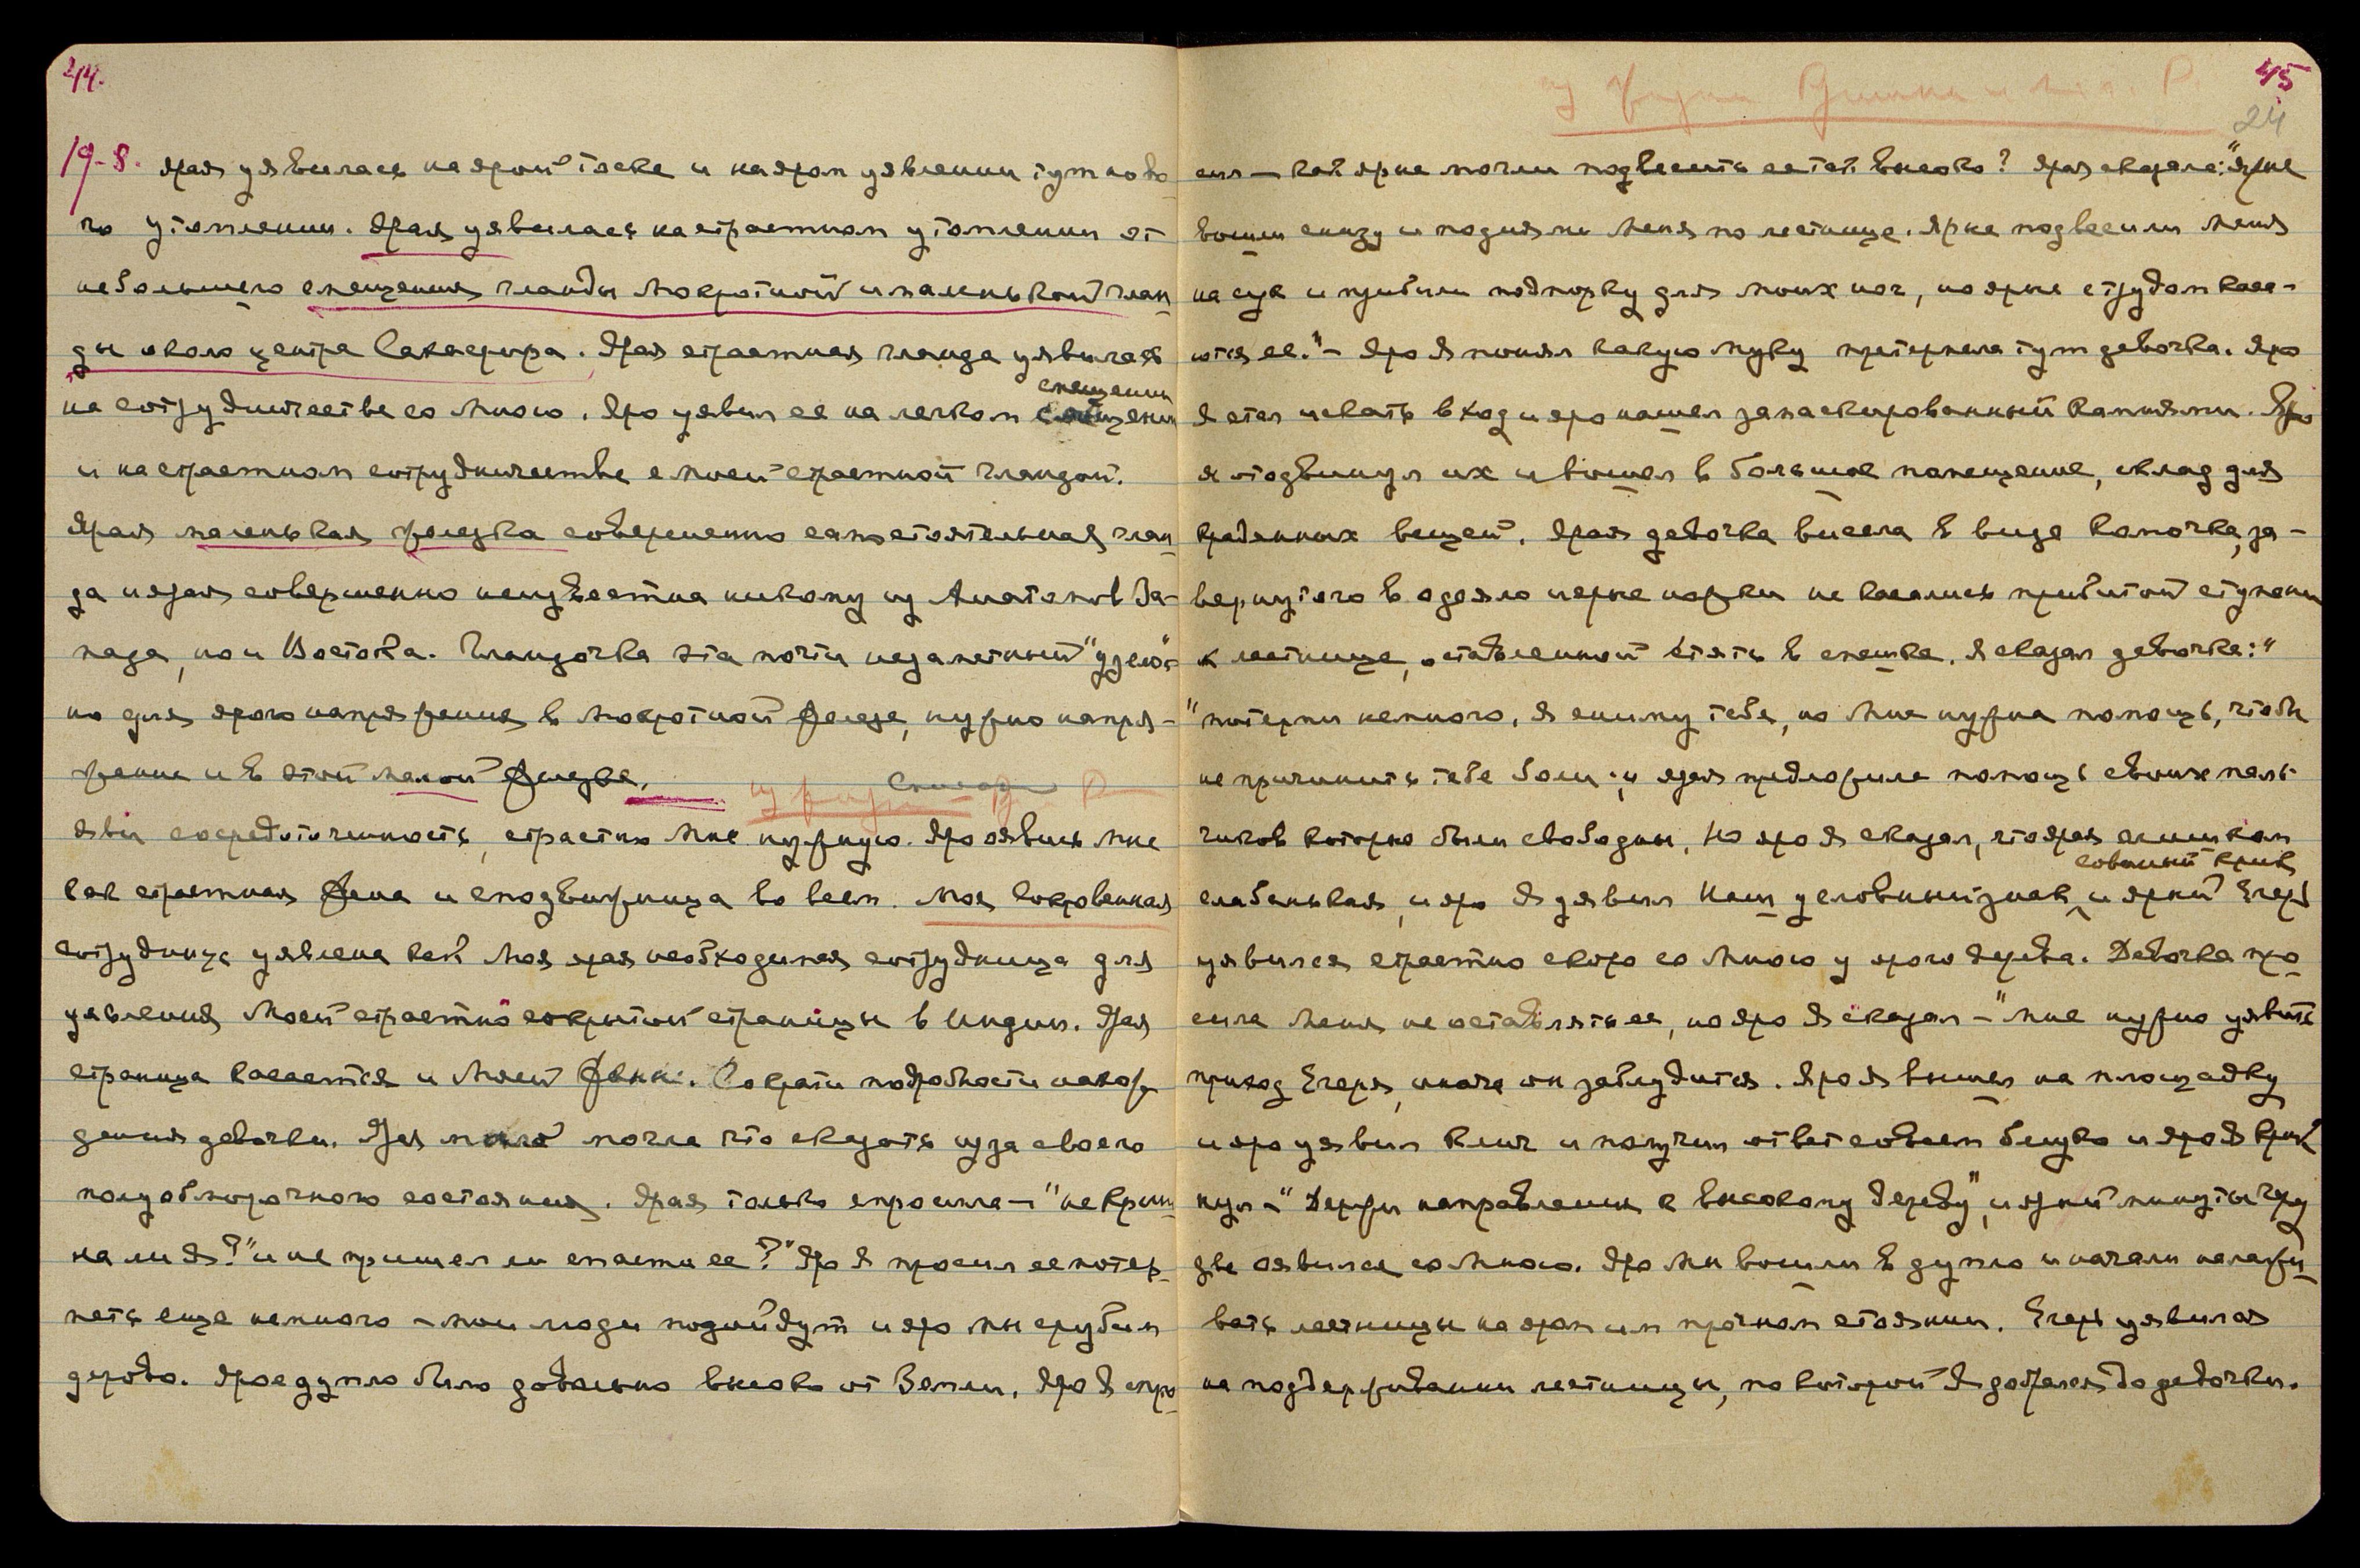 44.
19-8. Ярая уявилась на ярой тоске и на яром уявлении тут ново
го утомлении. Ярая уявилась на страстном утомлении от
небольшого смещения гланды мокротной и маленькой глан
ды около центра Саха. Ярая страстная гланда уявилась
смещении
на сотрудничестве со Мною. Яро уявил ее на легком
и на страстном сотрудничестве с моей страстной гландой.
Ярая маленькая железка совершенно самостоятельная глан
да и ярая совершенно неизвестна никому из Анатомов За-
пада, но и Востока. Гландочка эта почти незаметный "узело"
но для ярого напряжения в мокротной железе, нужно напря-
жение и в этой малой железке.
Яви сосредоточенность, страстно Мне нужную. Яро оявись Мне
как страстная Жена и сподвижница во всем. Моя Сокровенная
сотрудница уявлена как Моя ярая необходимая сотрудница для
уявления Моей страстно сокрытой страницы в Индии. Ярая
страница касается и Моей Жены. Сократи подробности нахож
дения девочки. Ярая мало могла что сказать из за своего
полуобморочного состояния. Ярая только спросила — "не крыш
на ли Я?" и не пришел ли спасти ее?" Яро Я просил ее потер
петь еще немного — мои люди подойдут и яро мы срубим
дерево. Ярое дупло было довольно высоко от Земли. Яро Я спро
45
24
сил — как яные могли подвесить ее так высоко? Ярая сказала: "Яные
вошли снизу и подняли меня по лестнице. Яные подвесили меня
на сук и прибили подпорку для моих ног, но яные с трудом каса-
ются ее." — Яро Я понял какую муку претерпела тут девочка. Яро
Я стал искать вход и яро нашел замаскированный камнями. Яро
Я отодвинул их и вошел в большое помещение, склад для
краденных вещей. Ярая девочка висела в виде комочка, за-
вернутого в одеяло и яные ножки не касались прибитой ступени
к лестнице, оставленной стоять в спешке. Я сказал девочке: "
"потерпи немного, Я сниму тебя, но Мне нужна помощь, чтобы
не причинить тебе боли; и ярая предложила помощь своих паль-
чиков которые были свободны, но яро Я сказал, что ярая слишком
совиный крик
слабенькая, и яро Я уявил Наш условный знак, и яркий Егерь
уявился страстно скоро со Мною у ярого дерева. Девочка про
сила Меня не оставлять ее, но яро Я сказал — "Мне нужно уявить
приход Егеря, иначе он заблудится. Яро Я вышел на площадку
и яро уявил клич и получил ответ совсем близко и яро Я крик
нул — "Держи направление к высокому дереву", и яркий минуты через
две оявился со Мною. Яро мы вошли в дупло и начали налажи
вать лестницы на яром им прочном стоянии. Егерь уявился
на поддерживании лестницы, по которой Я добрался до девочки.